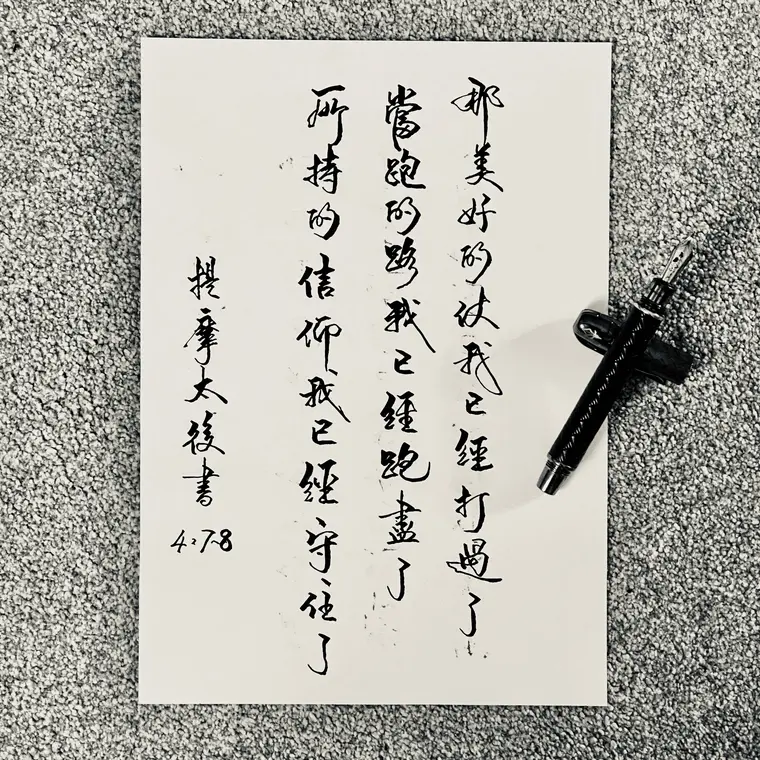 那美好的仗我已經打過了
當跑的路我已經跑盡了
所持的信仰我已經守住了
提摩太後書
4:7-8